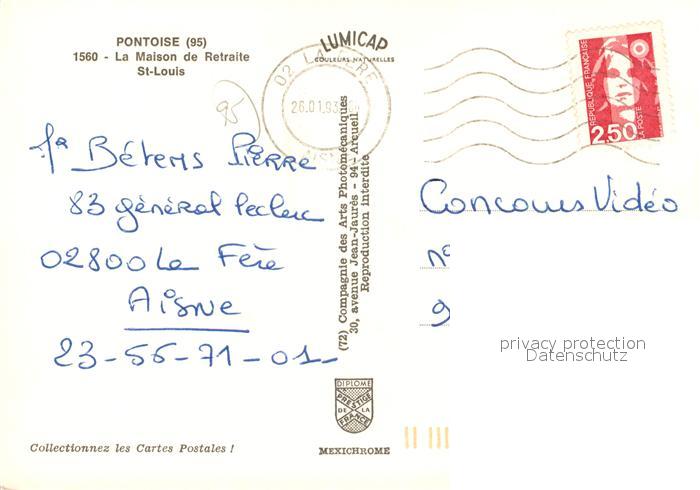 PONTOISE (95)
1560 - La Maison de Retraite
St-Louis
LUMICAP
COULEURS NATURELLES
02 LA FERE
26.01.93
AISNE
RÉPUBLIQUE FRANÇAISE
LA POSTE
2,50
95
Pierre
83 général Leclerc
02800 La Fère
Aisne
23-56-71-01-
Concours Vidéo
n°
9
(72) Compagnie des Arts Photomécaniques
30, avenue Jean-Jaurès - 94 - Arcueil
Reproduction Interdite
privacy protection
Datenschutz
DIPLOME
PRESTIGE
DE LA
FRANCE
Collectionnez les Cartes Postales !
MEXICHROME